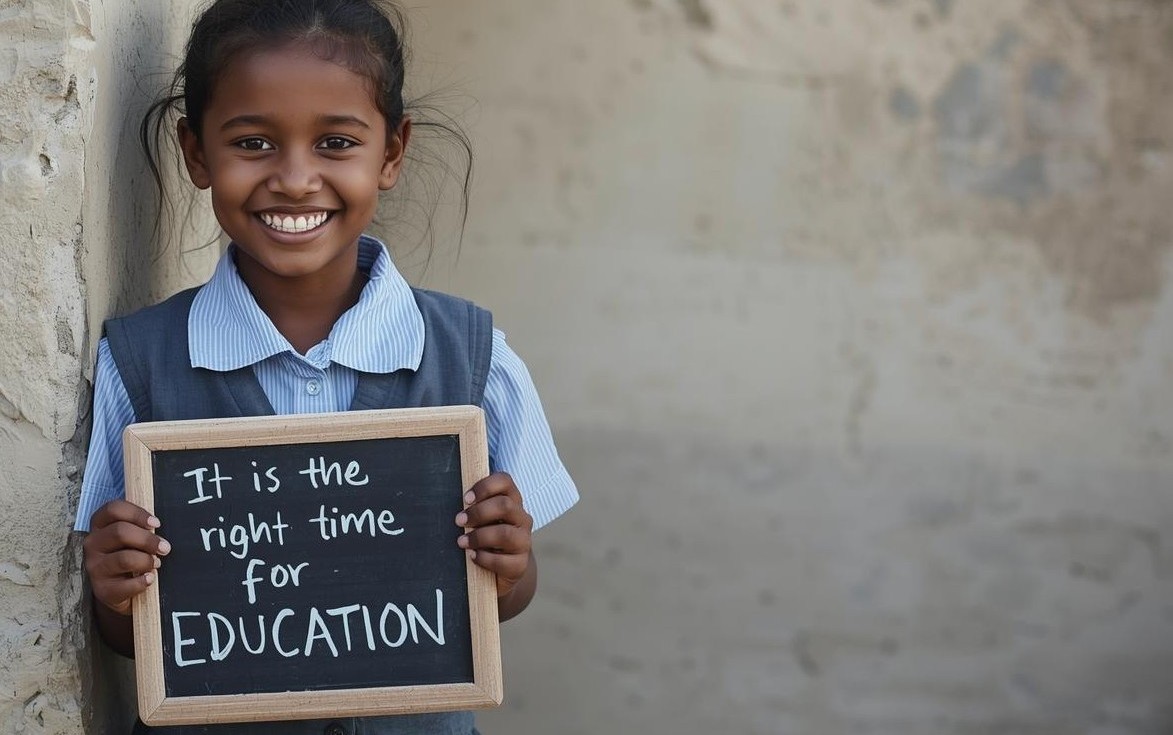 It is the
right time
for
EDUCATION